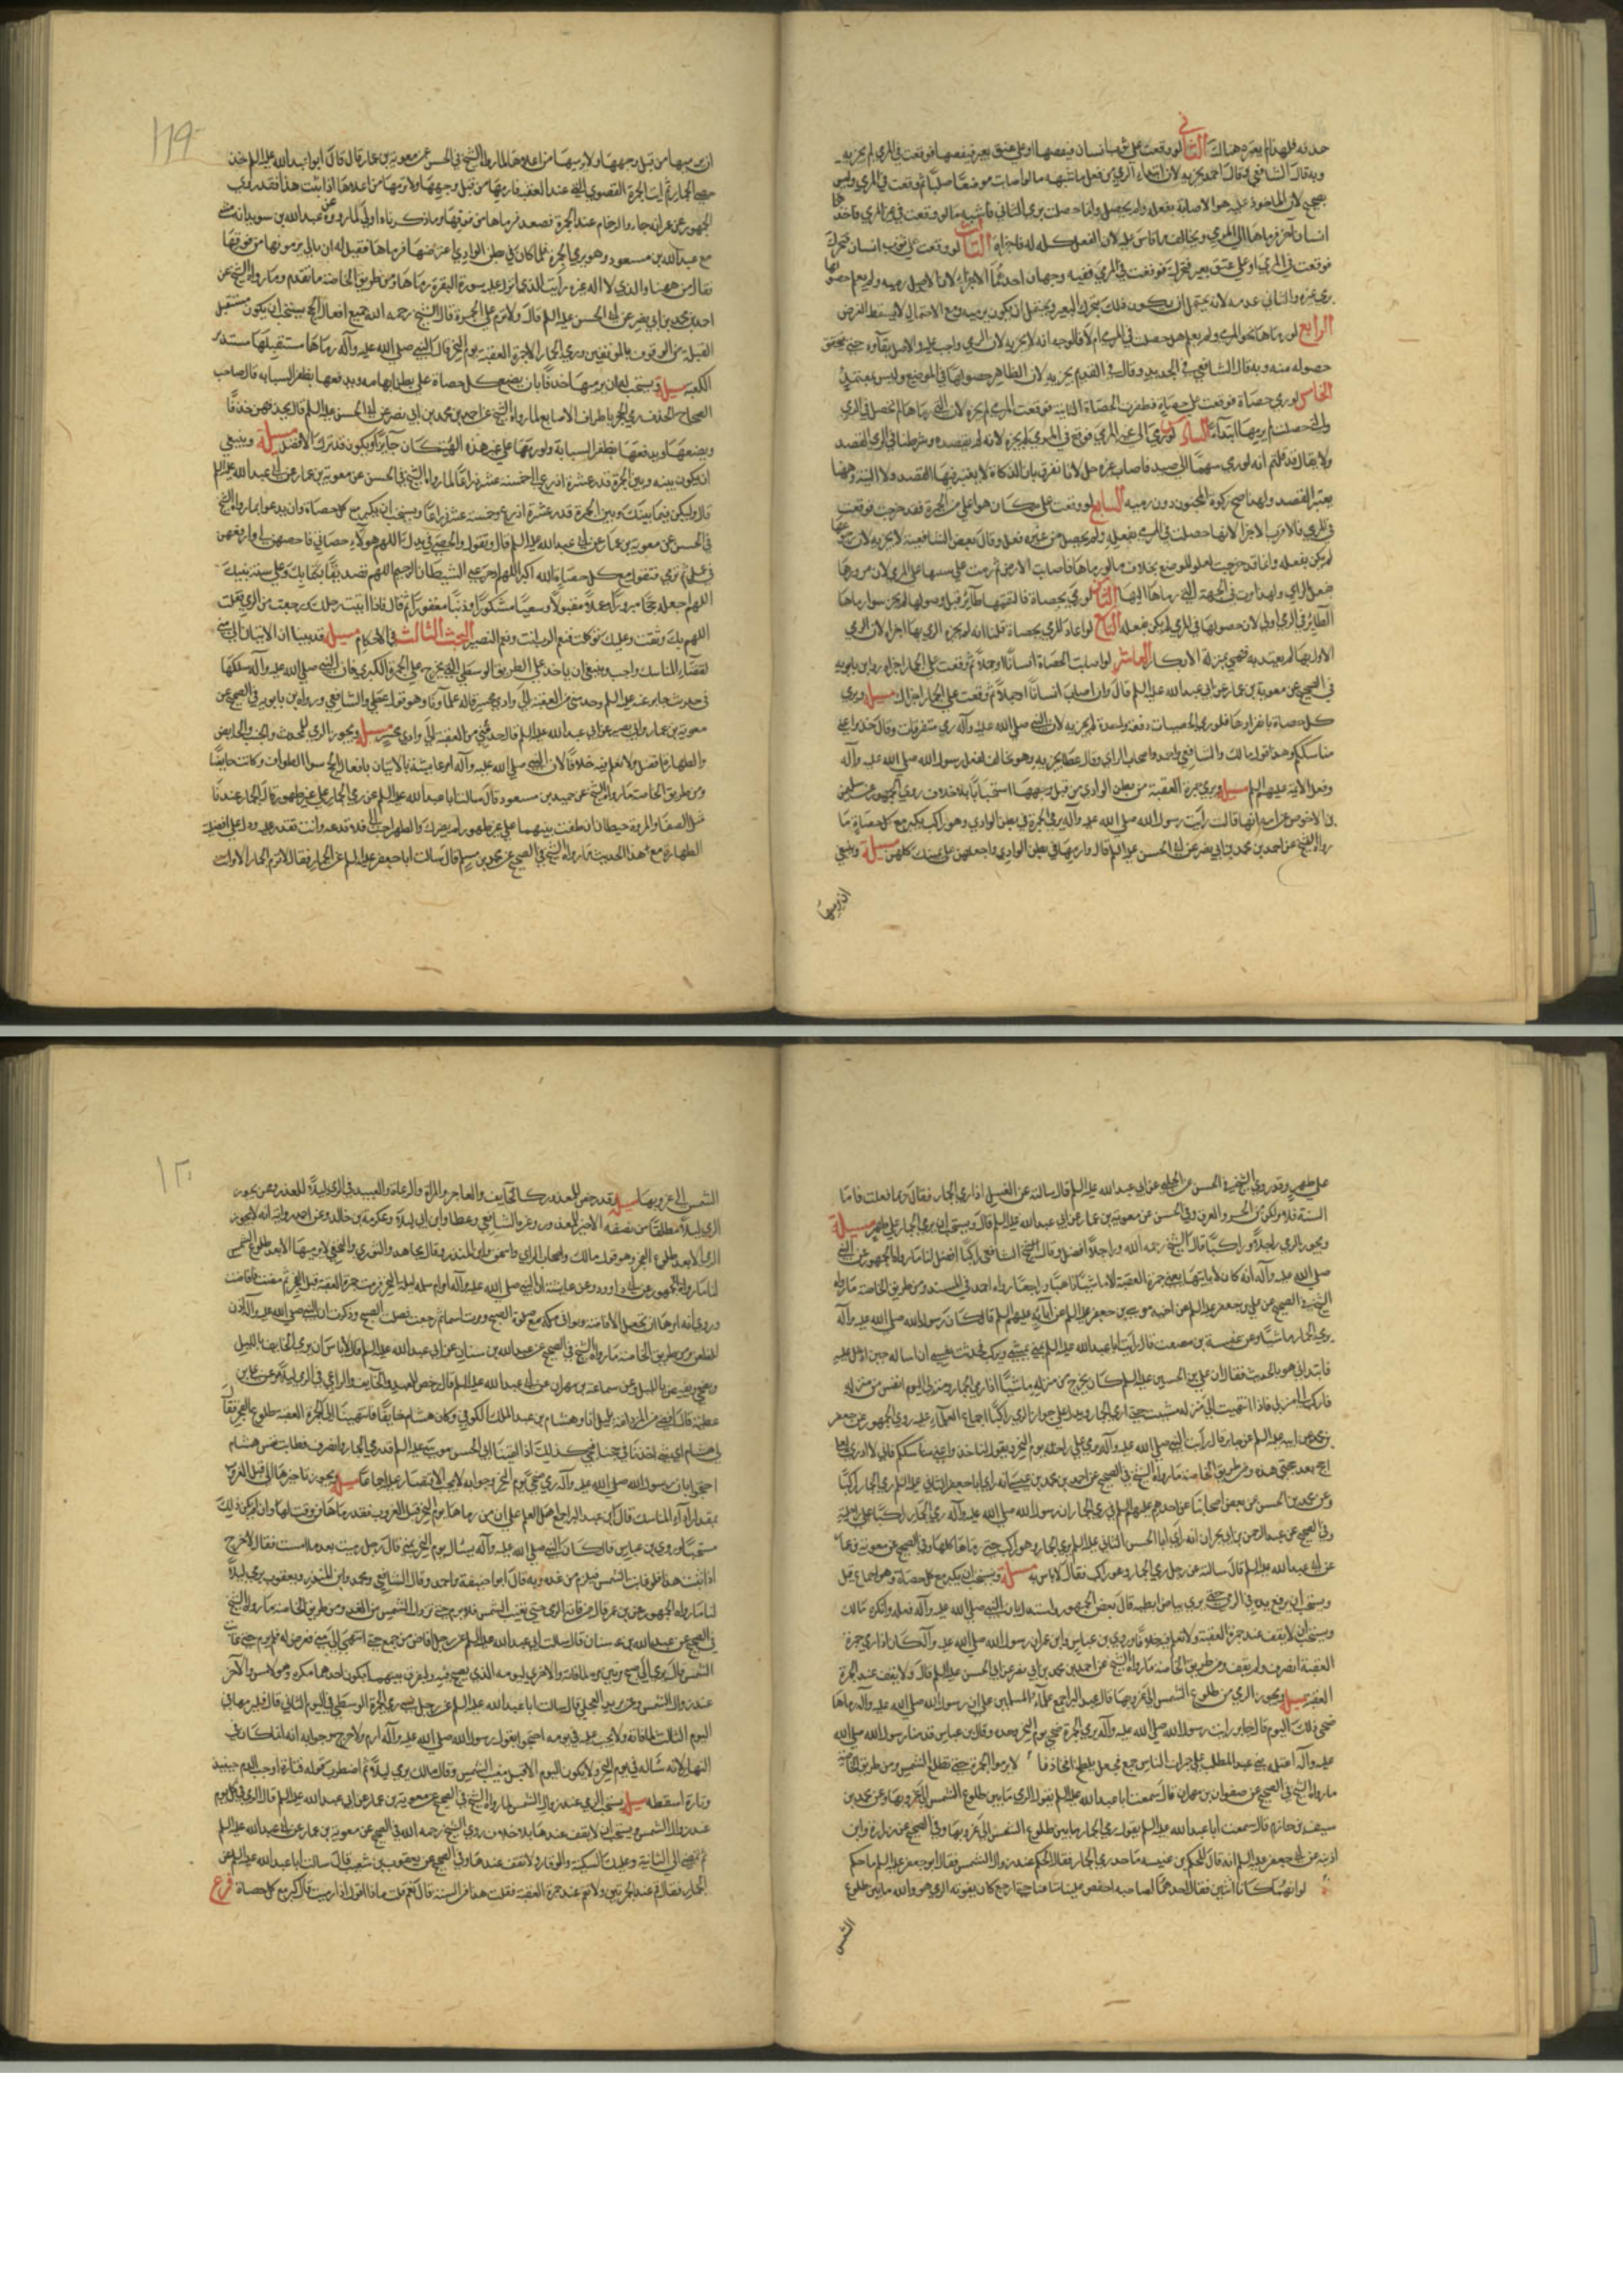 حدته فلهذا لم يعتبره هناك الثاني لو وقعت على ثوب انسان فنفضها او على عنق بعير فنفضها فوقعت في المرمى لم يجزيه
وبه قال الشافعي وقال احمد يجزيه لان ابتداء الرمي من فعله ما شبهه ما لو اصابت موضعا صلبا ثم وقعت في المرمى وليس
بصحيح لان الماخوذ عليه هو الاصابة بفعله ولم يحصل وانما حصلت برمي الثاني فاشبه ما لو وقعت في غير المرمى فاخذها
انسان آخر فرماها الى المرمى ويخالف ما قاس عليه لان الفعل كله له فاجزاه الثالث لو وقعت على ثوب انسان فتحرك
فوقعت في المرمى او على عنق بعير فتحرك فوقعت في المرمى ففيه وجهان احدهما الاجزاء لانها
رمى غيره والثاني عدمه لانه يحتمل ان يكون ذلك بتحرك البعير ويحتمل ان يكون برميه ومع الاحتمال لا يسقط الفرض
الرابع لو رماها نحو المرمى ولم يعلم هل حصلت في المرمى ام لا فالوجه انه لا يجزيه لان الرمي واجب عليه والاصل بقآؤه حتى يتحقق
حصوله منه وبه قال الشافعي في الجديد وقال في القديم يجزيه لان الظاهر حصولها في الموضع وليس بمعتمد
الخامس لو رمى حصاة فوقعت على حصاة فطفرت الحصاة الثانية فوقعت المرمى لم يجزه لان التي رماها لم تحصل في المرمى
والتي حصلت لم يرمها ابتداءً السادس لو رمى الى غير المرمى فوقع في المرمى لم يجزه لانه لم يقصده وشرطنا في الرمي القصد
ولا يقال قد قلتم انه لو رمى سهما الى صيد فاصاب غيره حل لانا نفرق بان الذكاة لا يعتبر فيها القصد ولا النية وههنا
يعتبر القصد ولهذا صح زكوة المجنون دون رميه السابع لو وقعت على مكان هو اعلى من الجمرة فتدحرجت فوقعت
في المرمى فالاقرب الاجزاء لانها حصلت في المرمى بفعله ولم يحصل من غيره فعل وقال بعض الشافعية لا يجزيه لان رجوعها
لم يكن بفعله وانما تدحرجت لعلو الموضع بخلاف ما لو رماها فاصابت الارض ثم مرت على سننها على المرمى لان مرورها
بفعل الرامي ولهذا مرت في الجهة التي رماها اليها الثامن لو رمى بحصاة فالتقمها طائر قبل وصولها لم يجز سواء رماها
الطائر في المرمى او لا لان حصولها في المرمى لم يكن بفعله التاسع لو اعاد الرمي بحصاة قلنا انه لم يجزه الرمي بها اجزأه لان الرمي
الاول بها لم يعتد به فهي بمنزلة الابكار العاشر لو اصابت الحصاة انسانا او جملا ثم وقعت على الجمار اجزاه رواه ابن بابويه
في الصحيح عن معوية بن عمار عن ابي عبد الله عليه السلم قال وان اصابت انسانا او جملا ثم وقعت على الجمار اجزاك مسئلة ويرمي
كل حصاة بانفرادها فلو رمى الحصيات دفعة واحدة لم يجزيه لان النبي صلى الله عليه وآله رمى متفرقات وقال خذوا عني
مناسككم وهذا قول مالك والشافعي واحمد واصحاب الراي وقال عطا يجزيه وهو مخالف لفعل رسول الله صلى الله عليه وآله
وفعل الائمة عليهم السلم مسئلة ويرمي جمرة العقبة من بطن الوادي من قبل وجهها استحبابا بلا خلاف روى الجمهور عن سليمن
بن الاحوص عن امه انها قالت رايت رسول الله صلى الله عليه وآله يرمي الجمرة في بطن الوادي وهو راكب يكبر مع كل حصاة ما
رواه الشيخ عن احمد بن محمد بن ابي نصر عن ابي الحسن عليه السلم قال وارمها في بطن الوادي واجعلهن على يمينك كلهن مسئلة وينبغي
ان يرميها
١١٩
ان يرميها من قبل وجهها ولا يرميها من اعلاها لما رواه الشيخ في الحسن عن معوية بن عمار قال قال ابو عبد الله عليه السلم خذ
حصى الجمار ثم ايت الجمرة القصوى التي عند العقبة فارمها من قبل وجهها ولا ترمها من اعلاها اذا ثبت هذا فقد روى
الجمهور عن عمر انه جاء والزحام عند الجمرة فصعد فرماها من فوقها وما ذكرناه اولى لما رووه عن عبد الله بن سويد انه مشى
مع عبد الله بن مسعود وهو يرمي الجمرة فلما كان في بطن الوادي اعترضها فرماها فقيل له ان ناسا يرمونها من فوقها
فقال من ههنا والذي لا اله غيره رايت الذي انزلت عليه سورة البقرة رماها ومن طريق الخاصة ما تقدم وما رواه الشيخ عن
احمد بن محمد بن ابي نصر عن ابي الحسن عليه السلم قال ولا ترم على الجمرة قال الشيخ رحمه الله جميع افعال الحج يستحب ان يكون مستقبل
القبلة من الوقوف بالموقفين ورمي الجمار الا جمرة العقبة يوم النحر فان النبي صلى الله عليه وآله رماها مستقبلها مستدبر
الكعبة مسئلة ويستحب له ان يرميها خذفا بان يضع كل حصاة على بطن ابهامه ويدفعها بظفر السبابة قال صاحب
الصحاح الخذف رمي الحجر باطراف الاصابع لما رواه الشيخ عن احمد بن محمد بن ابي نصر عن ابي الحسن عليه السلم قال تخذفهن خذفا
ويضعها ويدفعها بظفر السبابة ولو رماها على غير هذه الهيئة كان جائزا ويكون قد ترك الافضل مسئلة وينبغي
ان يكون بينه وبين الجمرة قدر عشرة اذرع الى خمسة عشر ذراعا لما رواه الشيخ في الحسن عن معوية بن عمار عن ابي عبد الله عليه السلم
قال وليكن فيما بينك وبين الجمرة قدر عشرة اذرع وخمسة عشر ذراعا ويستحب ان يكبر مع كل حصاة وان يدعو لما رواه الشيخ
في الحسن عن معوية بن عمار عن ابي عبد الله عليه السلم قال وتقول والحصى في يدك اللهم هولاء حصياتي فاحصهن لي وارفعهن
في عملي ثم ترمي فتقول مع كل حصاة الله اكبر اللهم ادحر عني الشيطان الرجيم اللهم تصديقا بكتابك وعلى سنة نبيك
اللهم اجعله حجا مبرورا وعملا مقبولا وسعيا مشكورا وذنبا مغفورا ثم قال فاذا اتيت رحلك ورجعت من الرمي فقل
اللهم بك وثقت وعليك توكلت فنعم الرب انت ونعم النصير البحث الثالث في الاحكام مسئلة قد بينا ان الاتيان الى منى
لقضاء المناسك واجب وينبغي ان ياخذ على الطريق الوسطى التي تخرج على الجمرة الكبرى فان النبي صلى الله عليه وآله سلكها
في حديث جابر عنه عليه السلم وحد منى من العقبة الى وادي محسر قاله علمآؤنا وهو قول عطا والشافعي ورواه ابن بابويه في الصحيح عن
معوية بن عمار وابي بصير عن ابي عبد الله عليه السلم قال حد منى من العقبة الى وادي محسر مسئلة ويجوز الرمي للمحدث والجنب والحايض
والطهارة افضل ولا نعلم فيه خلافا لان النبي صلى الله عليه وآله امر عايشة بالاتيان بافعال الحج سوى الطواف وكانت حايضا
ومن طريق الخاصة ما رواه الشيخ عن حميد بن مسعود قال سالت ابا عبد الله عليه السلم عن رمي الجمار على غير طهور قال الجمار عندنا
مثل الصفا والمروة حيطان ان طفت بينهما على غير طهور لم يضرك والطهر احب الي فلا تدعه وانت تقدر عليه ودل على افضلية
الطهارة مع هذا الحديث ما رواه الشيخ في الصحيح عن محمد بن مسلم قال سالت ابا جعفر عليه السلم عن الجمار فقال لا ترم الجمار الا وانت
على طهر وقد روى الشيخ في الحسن عن الحلبي عن ابي عبد الله عليه السلم قال سالته عن الغسل اذا رمى الجمار فقال ربما فعلت فاما
السنة فلا ولكن من الحر والعرق وفي الحسن عن معوية بن عمار عن ابي عبد الله عليه السلم قال ويستحب ان يرمي الجمار على طهر مسئلة
ويجوز الرمي راجلا وراكبا قال الشيخ رحمه الله وراجلا افضل وقال الشافعي راكبا افضل لنا ما رواه الجمهور عن النبي
صلى الله عليه وآله انه كان لا ياتيها يعني جمرة العقبة الا ماشيا ذاهبا وراجعا رواه احمد في المسند ومن طريق الخاصة ما رواه
الشيخ في الصحيح عن علي بن جعفر عليه السلم عن اخيه موسى بن جعفر عليه السلم عن آبائه عليهم السلم قال كان رسول الله صلى الله عليه وآله
يرمي الجمار ماشيا وعن عنبسة بن مصعب قال رايت ابا عبد الله عليه السلم بمنى يمشي ويركب فحدثت نفسي ان اساله حين ادخل عليه
فابتدأني هو بالحديث فقال ان علي بن الحسين عليه السلم كان يخرج من منزله ماشيا اذا رمى الجمار ومنزلي اليوم انفس من منزله
فاركب حتى انتهي الى منزله فاذا انتهيت الى منزله مشيت حتى ارمي الجمار ويدل على جواز الرمي راكبا اجماع العلمآء عليه روى الجمهور عن جعفر
بن محمد عن ابيه عليه السلم عن جابر قال رايت النبي صلى الله عليه وآله يرمي على راحلته يوم النحر ويقول لنا خذوا عني مناسككم فاني لا ادري لعلي لا
احج بعد حجتي هذه ومن طريق الخاصة ما رواه الشيخ في الصحيح عن احمد بن محمد بن عيسى انه راى ابا جعفر الثاني عليه السلم رمى الجمار راكبا
وعن محمد بن الحسين عن بعض اصحابنا عن احدهم عليهم السلم في رمي الجمار ان رسول الله صلى الله عليه وآله رمى الجمار راكبا على راحلته
وفي الصحيح عن عبد الرحمن بن ابي نجران انه راى ابا الحسن الثاني عليه السلم يرمي الجمار وهو راكب حتى رماها كلها وفي الصحيح عن معوية بن عمار
عن ابي عبد الله عليه السلم قال سالته عن رجل رمى الجمار وهو راكب فقال لا باس به مسئلة ويستحب ان يكبر مع كل حصاة وهو اجماع قيل
ويستحب ان يرفع يديه في الرمي حتى يرى بياض ابطيه قاله بعض الجمهور واستدل بان النبي صلى الله عليه وآله فعله وانكره مالك
ويستحب ان لا يقف عند جمرة العقبة ولا نعلم فيه خلافا وروى ابن عباس وابن عمر ان رسول الله صلى الله عليه وآله كان اذا رمى جمرة
العقبة انصرف ولم يقف ومن طريق الخاصة ما رواه الشيخ عن احمد بن محمد بن ابي نصر عن ابي الحسن عليه السلم قال ولا يقف عند الجمرة
العقبة مسئلة ويجوز الرمي من طلوع الشمس الى غروبها قال ابن عبد البر اجمع علمآء المسلمين على ان رسول الله صلى الله عليه وآله رماها
ضحى ذلك اليوم قال جابر رايت رسول الله صلى الله عليه وآله يرمي الجمرة ضحى يوم النحر وحده وقال ابن عباس قدمنا رسول الله صلى الله
عليه وآله اغيلمة بني عبد المطلب على حمرات الناس جمع فجعل يلطح افخاذنا لا ترموا الجمرة حتى تطلع الشمس ومن طريق الخاصة
ما رواه الشيخ في الصحيح عن صفوان بن مهران قال سمعت ابا عبد الله عليه السلم يقول الرمي ما بين طلوع الشمس الى غروبها وعن محمد بن
سيف بن حازم قال سمعت ابا عبد الله عليه السلم يقول رمي الجمار ما بين طلوع الشمس الى غروبها وفي الصحيح عن زرارة وابن
اذينة عن ابي جعفر عليه السلم انه قال للحكم بن عتيبة ما حد رمي الجمار فقال الحكم عند زوال الشمس فقال ابو جعفر عليه السلم يا حكم
لو انهما كانا اثنين فقال احدهما لصاحبه احفظ علينا متاعنا حتى ارجع كان يفوته الرمي هو والله ما بين طلوع
الشمس
١٢٠
الشمس الى غروبها مسئلة وقد رخص للمعذور كالخآئف والعاجز والمرأة والرعاة والعبيد في الرمي ليلا للعذر وممن جوز
الرمي ليلا مطلقا من نصفه الاخير للمعذور وغيره الشافعي وعطا وابن ابي ليلى وعكرمة بن خالد وعن احمد رواية انه لا يجوز
الرمي الا بعد طلوع الفجر وهو قول مالك واصحاب الراي واسحق وابن المنذر وقال مجاهد والثوري والنخعي لا يرميها الا بعد طلوع الشمس
لنا ما رواه الجمهور عن ابي داوود عن عايشة ان النبي صلى الله عليه وآله امر ام سلمة ليلة النحر فرمت جمرة العقبة قبل الفجر ثم مضت فافاضت
وروي انه امرها ان تعجل الافاضة وتوافي مكة مع صلوة الصبح ورمت اسماء ثم رجعت فصلت الصبح وذكرت ان النبي صلى الله عليه وآله اذن
للظعن ومن طريق الخاصة ما رواه الشيخ في الصحيح عن عبد الله بن سنان عن ابي عبد الله عليه السلم قال لا باس ان يرمي الخايف بالليل
ويضحي ويفيض بالليل وعن سماعة بن مهران عن ابي عبد الله عليه السلم قال رخص للعبد والخايف والراعي في الرمي ليلا وعن علي بن
عطية قال افضنا من المزدلفة بليل انا وهشام بن عبد الملك الكوفي وكان هشام خايفا فانتهينا الى جمرة العقبة طلوع الفجر فقال
لي هشام اي شيء احدثنا في حجنا فنحن كذلك اذ لقينا ابي الحسن موسى عليه السلم قد رمى الجمار وانصرف فطابت نفس هشام
احتجوا بان رسول الله صلى الله عليه وآله رمى ضحى يوم النحر وجوابه لا يجب الاقتصار عليه اجماعا مسئلة يجوز تاخيرها الى قبل الغروب
بمقدار اداء المناسك قال ابن عبد البر اجمع اهل العلم على ان من رماها يوم النحر قبل الغروب فقد رماها في وقت لها وان لم يكن ذلك
مستحبا وروى ابن عباس قال كان النبي صلى الله عليه وآله يسأل يوم النحر بمنى قال رجل رميت بعد ما امسيت فقال لا حرج
اذا ثبت هذا فلو غابت الشمس فليرم من غده وبه قال ابو حنيفة واحمد وقال الشافعي ومحمد وابن المنذر ويعقوب يرمي ليلا
لنا ما رواه الجمهور عن ابن عمر قال من فاته الرمي حتى تغيب الشمس فلا يرم حتى تزول الشمس من الغد ومن طريق الخاصة ما رواه الشيخ
في الصحيح عن عبد الله بن سنان قال سالت ابي عبد الله عليه السلم عن رجل افاض من جمع حتى انتهى الى منى فعرض له فلم يرم حتى غابت
الشمس قال يرمي اذا اصبح مرتين مرة لما فاته والاخرى ليومه الذي يصبح فيه وليفرق بينهما يكون احدهما بكرة وهو للامس والآخر
عند زوال الشمس وعن بريد العجلي قال سالت ابا عبد الله عليه السلم عن رجل نسي رمي الجمرة الوسطى في اليوم الثاني قال فليرمها في
اليوم الثالث لما فاته ولما يجب عليه في يومه احتجوا بقول رسول الله صلى الله عليه وآله ارم ولا حرج وجوابه انه انما كان في
النهار لانه سأله في يوم النحر ولا يكون اليوم الا قبل مغيب الشمس وقال مالك يرمي ليلا ثم اضطرب قوله فتارة اوجب الدم حينئذ
وتارة اسقطه مسئلة يستحب الرمي عند زوال الشمس لما رواه الشيخ في الصحيح عن معوية بن عمار عن ابي عبد الله عليه السلم قال الرمي في كل يوم
عند زوال الشمس ويستحب ان لا يقف عندها بلا خلاف روى الشيخ رحمه الله في الصحيح عن معوية بن عمار عن ابي عبد الله عليه السلم
ثم تمضي الى الثانية وعليك السكينة والوقار ولا تقف عندها وفي الصحيح عن يعقوب بن شعيب قال سالت ابا عبد الله عليه السلم عن
الجمار فقال قم عند الجمرتين ولا تقم عند جمرة العقبة فقلت هذا من السنة قال نعم قلت ماذا اقول اذا رميت قال كبر مع كل حصاة فرع